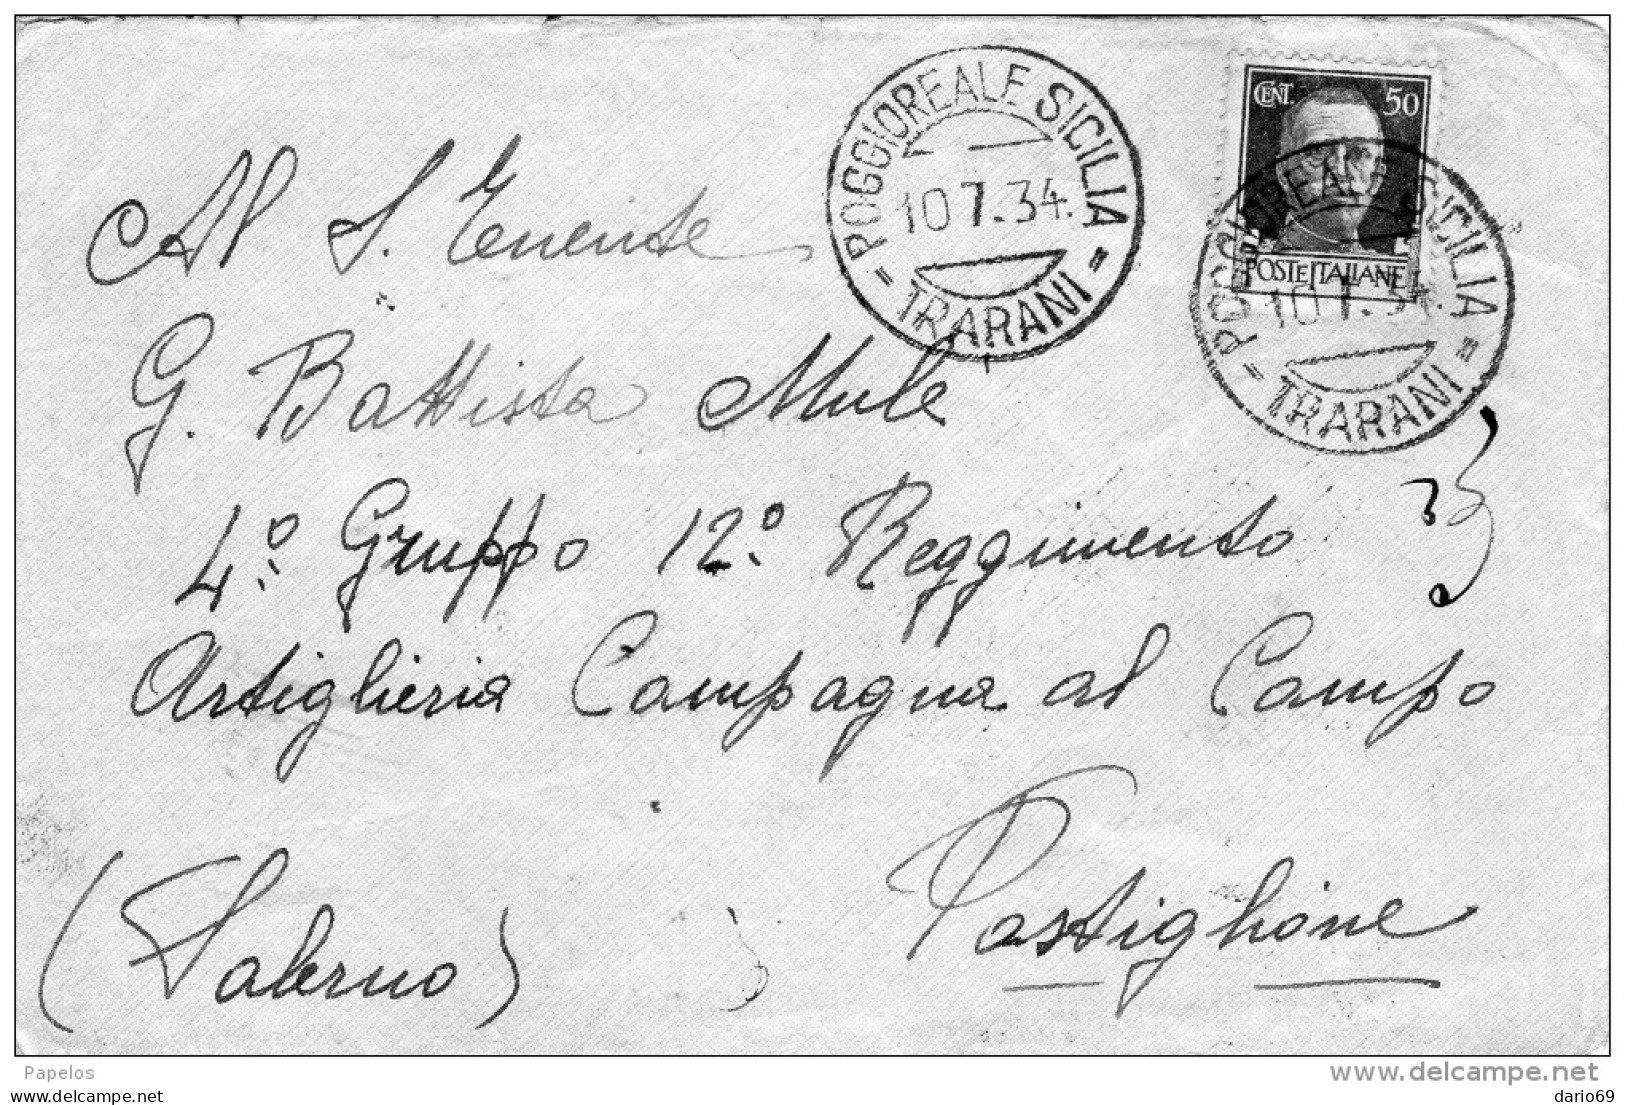 POGGIOREALE SICILIA
10 7.34.
= TRARANI =
CENT. 50
POSTE ITALIANE
POGGIOREALE SICILIA
10 7.34.
= TRARANI =
Al S. Tenente
G. Battista Mulè
4º. Gruppo 12º. Reggimento
Artiglieria Campagna al Campo
Postiglione
(Salerno)
Papelos
www.delcampe.net
dario69